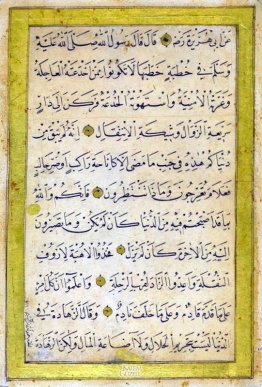 عن أبي هريرة رضه قال قال رسول الله صلى الله عليه
وسلم في خطبة خطبها لا تكونوا ممن خدعته العاجلة
وغرته الأمنية واستهوته الخدعة فركن إلى دار
سريعة الزوال وشيكة الانتقال إنه لم يبق من
دنياكم هذه في جنب ما مضى إلا كإناخة راكب أو صر حالب
فعلام تعرجون وماذا تنتظرون فإنكم والله
بما قد أصبحتم فيه من الدنيا كان لم يكن وما تصيرون
إليه من الآخرة كان لم يزل فخذوا الأهبة لازوف
النقلة وأعدوا الزاد لقرب الرحلة واعلموا أن كل امرئ
على ما قدم قادم وعلى ما خلف نادم وقال الزهادة في
الدنيا ليست بتحريم الحلال ولا إضاعة المال ولكن الزهادة